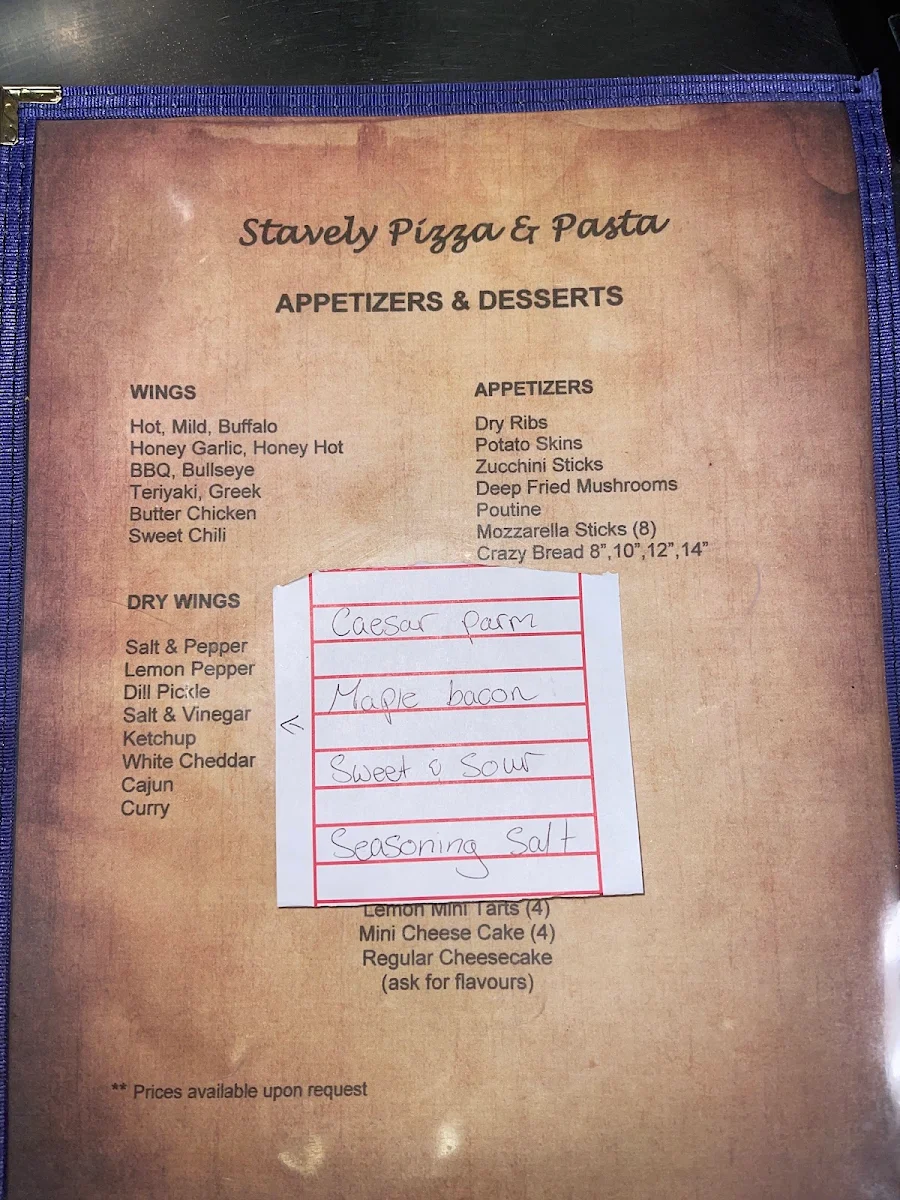 Stavely Pizza & Pasta
APPETIZERS & DESSERTS
WINGS
Hot, Mild, Buffalo
Honey Garlic, Honey Hot
BBQ, Bullseye
Teriyaki, Greek
Butter Chicken
Sweet Chili
APPETIZERS
Dry Ribs
Potato Skins
Zucchini Sticks
Deep Fried Mushrooms
Poutine
Mozzarella Sticks (8)
Crazy Bread 8”,10”,12”,14”
DRY WINGS
Salt & Pepper
Lemon Pepper
Dill Pickle
Salt & Vinegar
Ketchup
White Cheddar
Cajun
Curry
Caesar parm
Maple bacon
Sweet & Sour
Seasoning Salt
Lemon Mini Tarts (4)
Mini Cheese Cake (4)
Regular Cheesecake
(ask for flavours)
** Prices available upon request